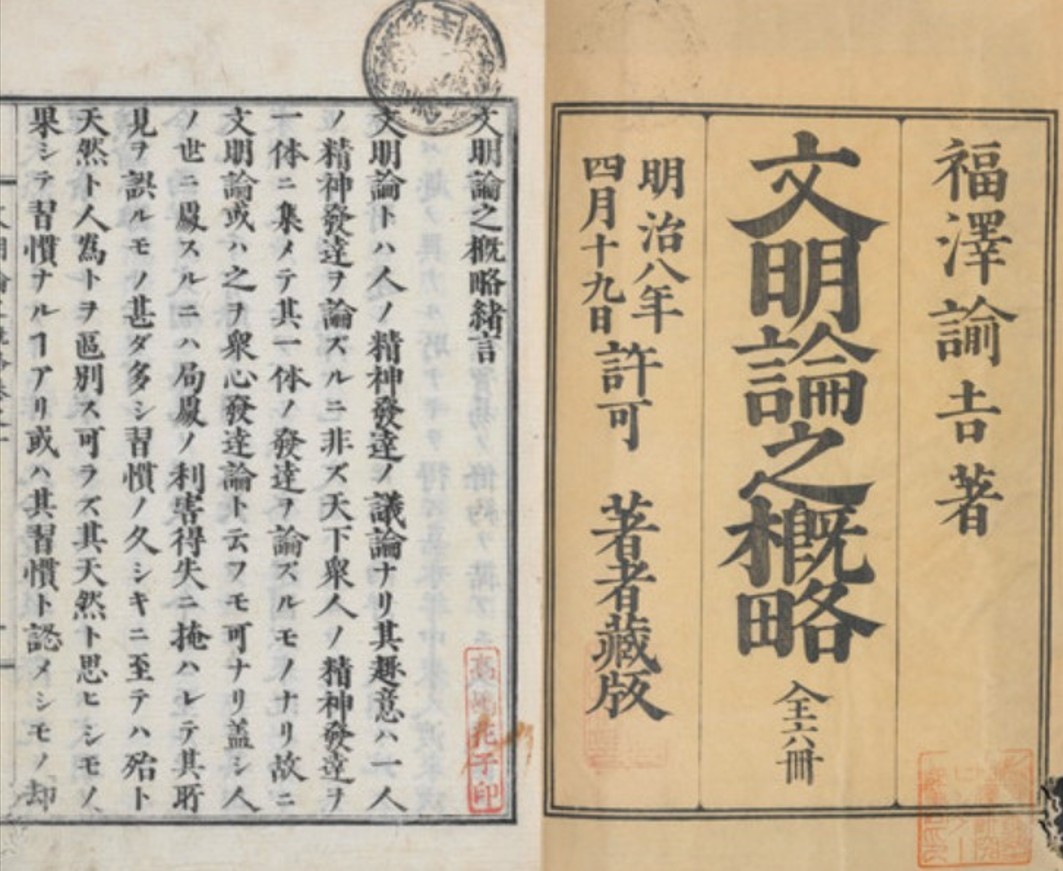 福澤諭吉著
文明論之概略 全六冊
明治八年
四月十九日 許可
著者藏版
文明論之概略緒言
文明論トハ人ノ精神發達ノ議論ナリ其趣意ハ一人
ノ精神發達ヲ論ズルニ非ズ天下衆人ノ精神發達ヲ
一体ニ集メテ其一体ノ發達ヲ論ズルモノナリ故ニ
文明論或ハ之ヲ衆心發達論ト云フモ可ナリ蓋シ人
ノ世ニ處スルニハ局處ノ利害得失ニ掩ハレテ其所
見ヲ誤ルモノ甚ダ多シ習慣ノ久シキニ至テハ殆ト
天然ト人爲トヲ區別ス可ラズ其天然ト思ヒシモノ
果シテ習慣ナルヿアリ或ハ其習慣ト認メシモノ却
花子印